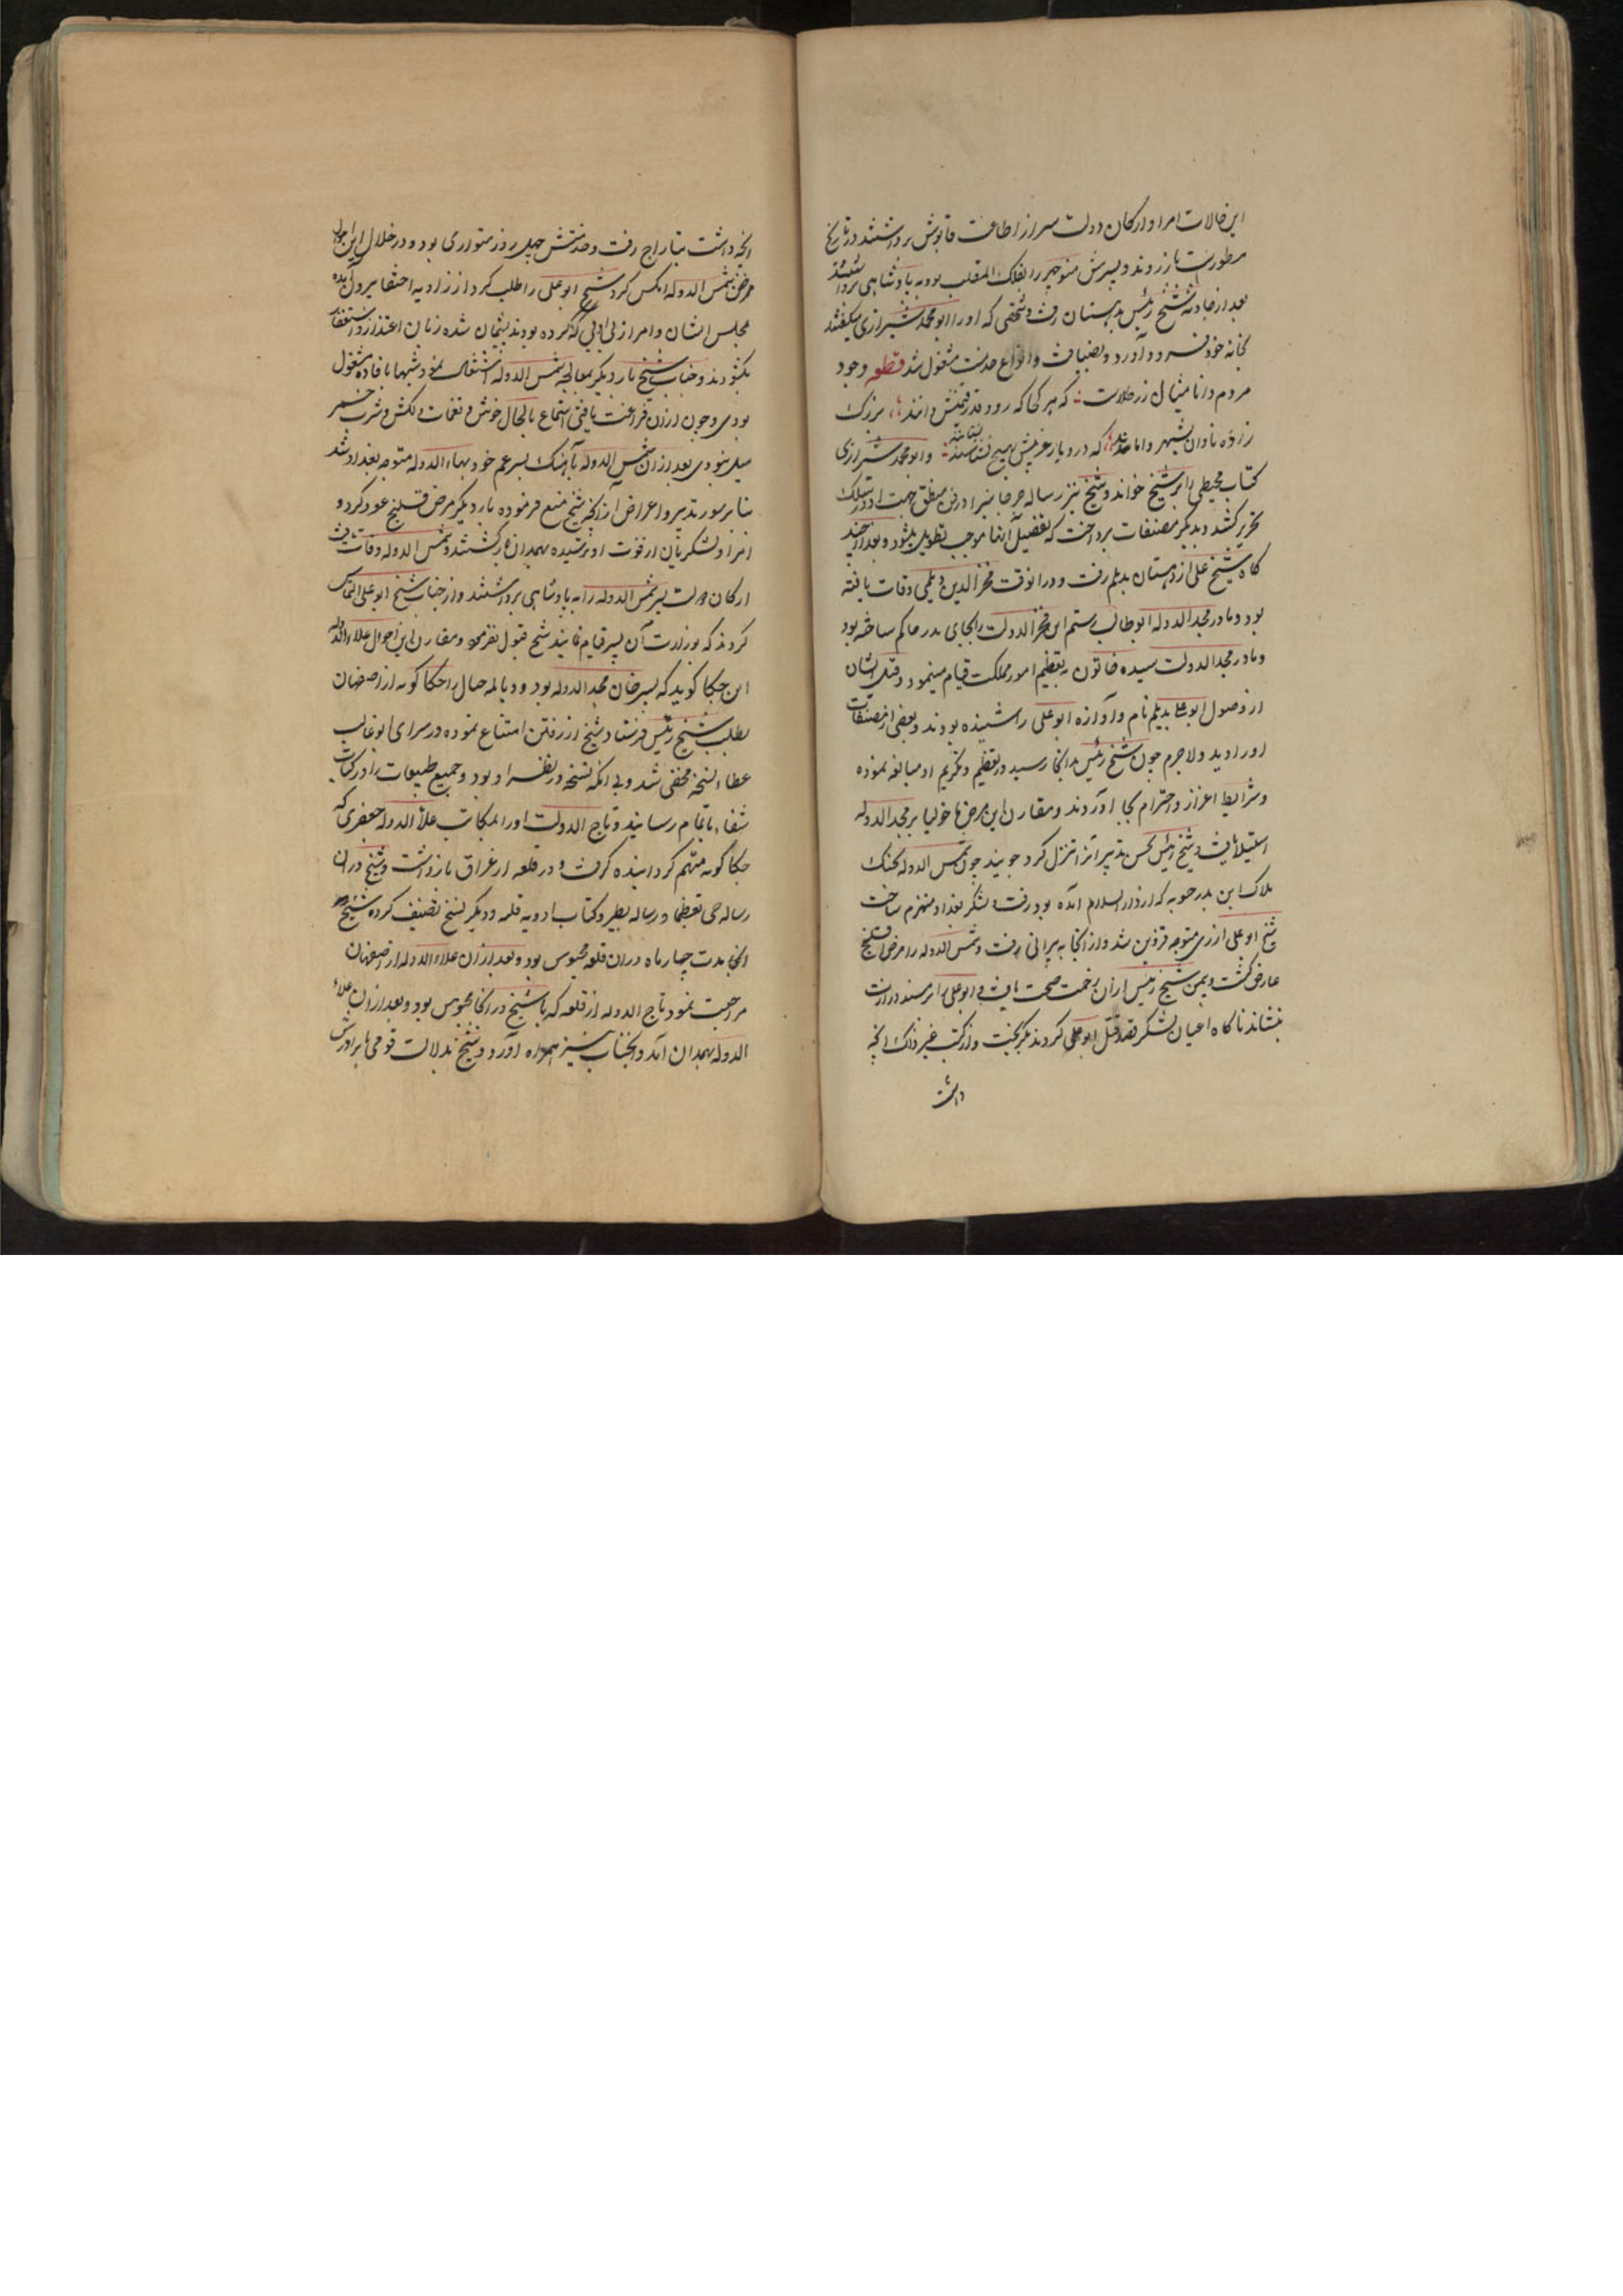 این حالات امرا و ارکان دولت سر از اطاعت قابوس برداشتند در تاریخ
مسطورست باز زدند و پسرش منوچهر را بفلک المقلب بوده بپادشاهی برداشتند
بعد از حادثه شیخ رئیس بدهستان رفت و شخصی که او را ابو محمد شیرازی میگفتند
بخانه خود فرود آورد و بضیافت و انواع خدمت مشغول شد قطعه وجود
مردم دانا مثال زر طلاست که هر کجا که رود قدر و قیمتش دانند بزرک
زاده نادان بشهر واماند که در دیار غریبش بهیچ نستانند و ابو محمد شیرازی
کتاب مجیطی را بر شیخ خواند و شیخ نیز رساله جرجانیرا در فن منطق جهت او در سلک
تحریر کشید و بدیکر مصنفات پرداخت که تفصیل آنها موجب تطویل میشود و بعد از چند
کاه شیخ علی از دهستان بدیلم رفت و در انوقت فخر الدین دیلمی وفات یافته
بود و مادر مجد الدوله ابو طالب رستم ابن فخر الدولت را بجای پدر حاکم ساخته بود
و مادر مجد الدولت سیده خاتون بتعظیم امور مملکت قیام مینمود و قبل ایشان
از وصول ابو علی بدیلم نام و آوازه ابو علی را شنیده بودند و بعضی از مصنفات
او را دید و لاجرم چون شیخ رئیس بدانجا رسید در تعظیم و تکریم او مبالغه نموده
و شرایط اعزاز و احترام بجا آوردند و مقارن این مرض ماخولیا بر مجد الدوله
استیلا یافت و شیخ رئیس بحسن تدبیر آنرا تنزل کرد جویند چون شمس الدوله بجنک
هلاک ابن بدر حسویه که از دار السلام آمده بود رفت و لشکر بغداد منهزم ساخت
شیخ ابو علی از ری متوجه قزوین شد و از انجا به پرانی رفت و شمس الدوله را مرض قولنج
عارض کشت و بیمن شیخ رئیس از ان زحمت صحت یافت و ابو علی را بر مسند وزارت
بنشاند ناکاه اعیان لشکر قصد قتل ابو علی کردند بکریخت و از کتب غیر ذلک انچه
داشت
انچه داشت بتاراج رفت و حضرتش چهل روز متواری بود و در خلال این حال
مرض شمس الدوله عکس کرد شیخ ابو علی را طلب کرد از زاویه اختفا بیرون آمده
مجلس ایشان و امرا از بی ادبی که کرده بودند پشیمان شده زبان اعتذار و استغفار
بکشودند و جناب شیخ بار دیکر بمعالجه شمس الدوله اشتغال نمود و شبها بافاده مشغول
بودی و چون از ان فراغت یافتی استماع بالحان خوش و نغمات دلکش و شرب خمر
میل بنودی بعد از ان شمس الدوله بآهنک پسر عم خود بهاء الدوله متوجه بغداد شد
بنا بر سور تدبیر و اعراض از انچه شیخ منع فرموده بار دیکر مرض قولنج عود کرد و
امرا و لشکریان از فوت او ترسیده بهمدان بازکشتند و شمس الدوله وفات یافت
ارکان دولت پسر شمس الدوله را به پادشاهی برداشتند و از جناب شیخ ابو علی التماس
کردند که بوزارت آن پسر قیام نمایند شیخ قبول نفرمود و مقارن این احوال علاء الدوله
ابن جکا کوید که پسر خان مجد الدوله بود و دیالمه خال را حکا کویه از اصفهان
بطلب شیخ رئیس فرستاد و شیخ از رفتن امتناع نموده در سرای ابو غالب
عطار نسخه مخفی شد و بی انکه نسخه در نظر او بود و جمیع طبیعات را در کتاب
شفاء باتمام رسانید و تاج الدولت او را بمکاتب علاء الدوله جعفری که
جکا کویه متهم کردانیده کرفت و در قلعه از عراق بازداشت و شیخ در ان
رساله حی تعظما و رساله بطیر و کتاب ادویه قلبه و دیکر نسخ تصنیف کرده شیخ
انجا مدت چهار ماه در ان قلعه محبوس بود و بعد از ان علاء الدوله از اصفهان
مراجعت نمود تاج الدوله از قلعه که با شیخ در انجا محبوس بود و بعد از ان علاء
الدوله بهمدان آمد و انجناب نیز همراه آورد و شیخ بدلالت قومی با برادرش